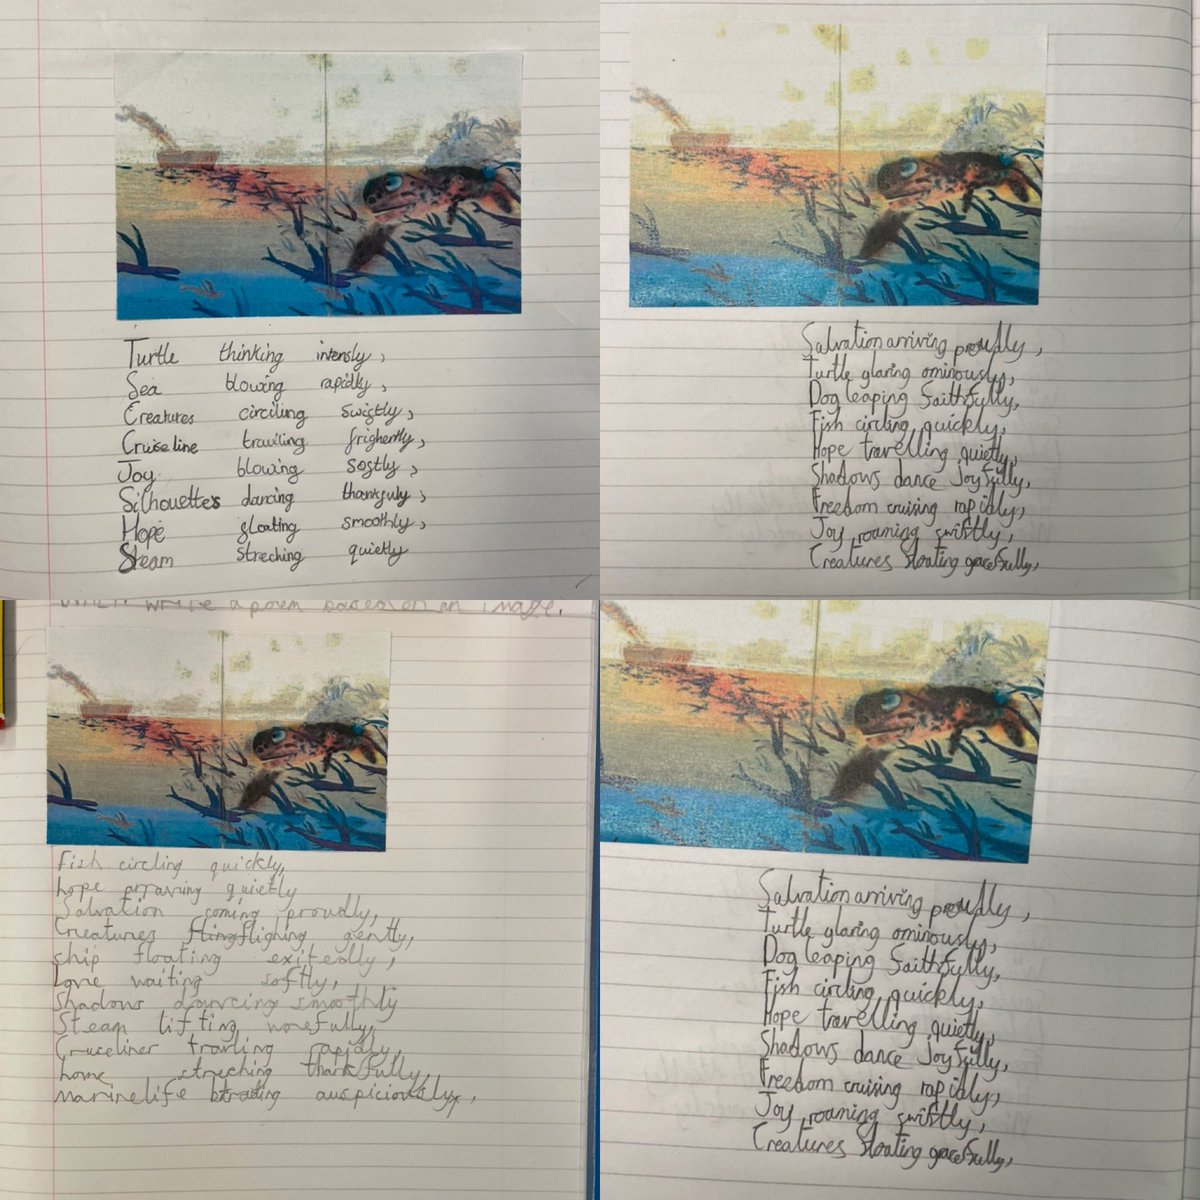 Turtle thinking intensly,
Sea blowing rapidly,
Creatures circiling swiftly,
Cruise line trauiling frighently,
Joy blowing softly,
Silhouettes dancing thankfuly,
Hope floating smoothly,
Steam streching quietly
Salvation arriving proudly,
Turtle glaring ominously,
Dog leaping faithfully,
Fish circling quickly,
Hope travelling quietly,
Shadows dance Joyfully,
Freedom cruising rapidly,
Joy roaming swiftly,
Creatures floating gracefully,
write a poem based on an image.
Fish circling quickly,
hope quietly
Salvation coming proudly,
Creatures gently,
ship floating exitedly,
Love waiting softly,
Shadows smoothly
Steam lifting
Cruseliner rapidly,
home streching thankfully,
marinelife auspiciously,
Salvation arriving proudly,
Turtle glaring ominously,
Dog leaping faithfully,
Fish circling quickly,
Hope travelling quietly,
Shadows dance Joyfully,
Freedom cruising rapidly,
Joy roaming swiftly,
Creatures floating gracefully,